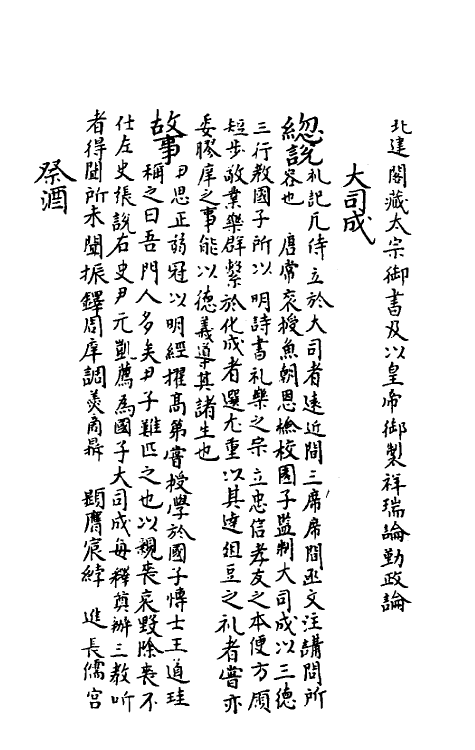 北建閣藏太宗御書及以皇帝御製祥瑞論勤政論
大司成
總說 礼記凡侍立於大司者遠近間三席席間函丈注講問所
容也 唐常衮授魚朝恩檢校國子監制大司成以三德
三行教國子所以明詩書礼樂之宗立忠信孝友之本使方願
短步敬業樂群繫於化成者選尤重以其達俎豆之礼者嘗亦
委膠庠之事能以德義導其諸生也
故事 尹思正弱冠以明經擢髙第嘗授學於國子博士王道珪
稱之曰吾門人多矣尹子難匹之也以親喪哀毀除喪不
仕左史張說右史尹元凱薦為國子大司成每釋奠辦三教听
者得聞所未聞振鐸周庠調羹商鼎 顯膺宸綍 進長儒宮
祭酒